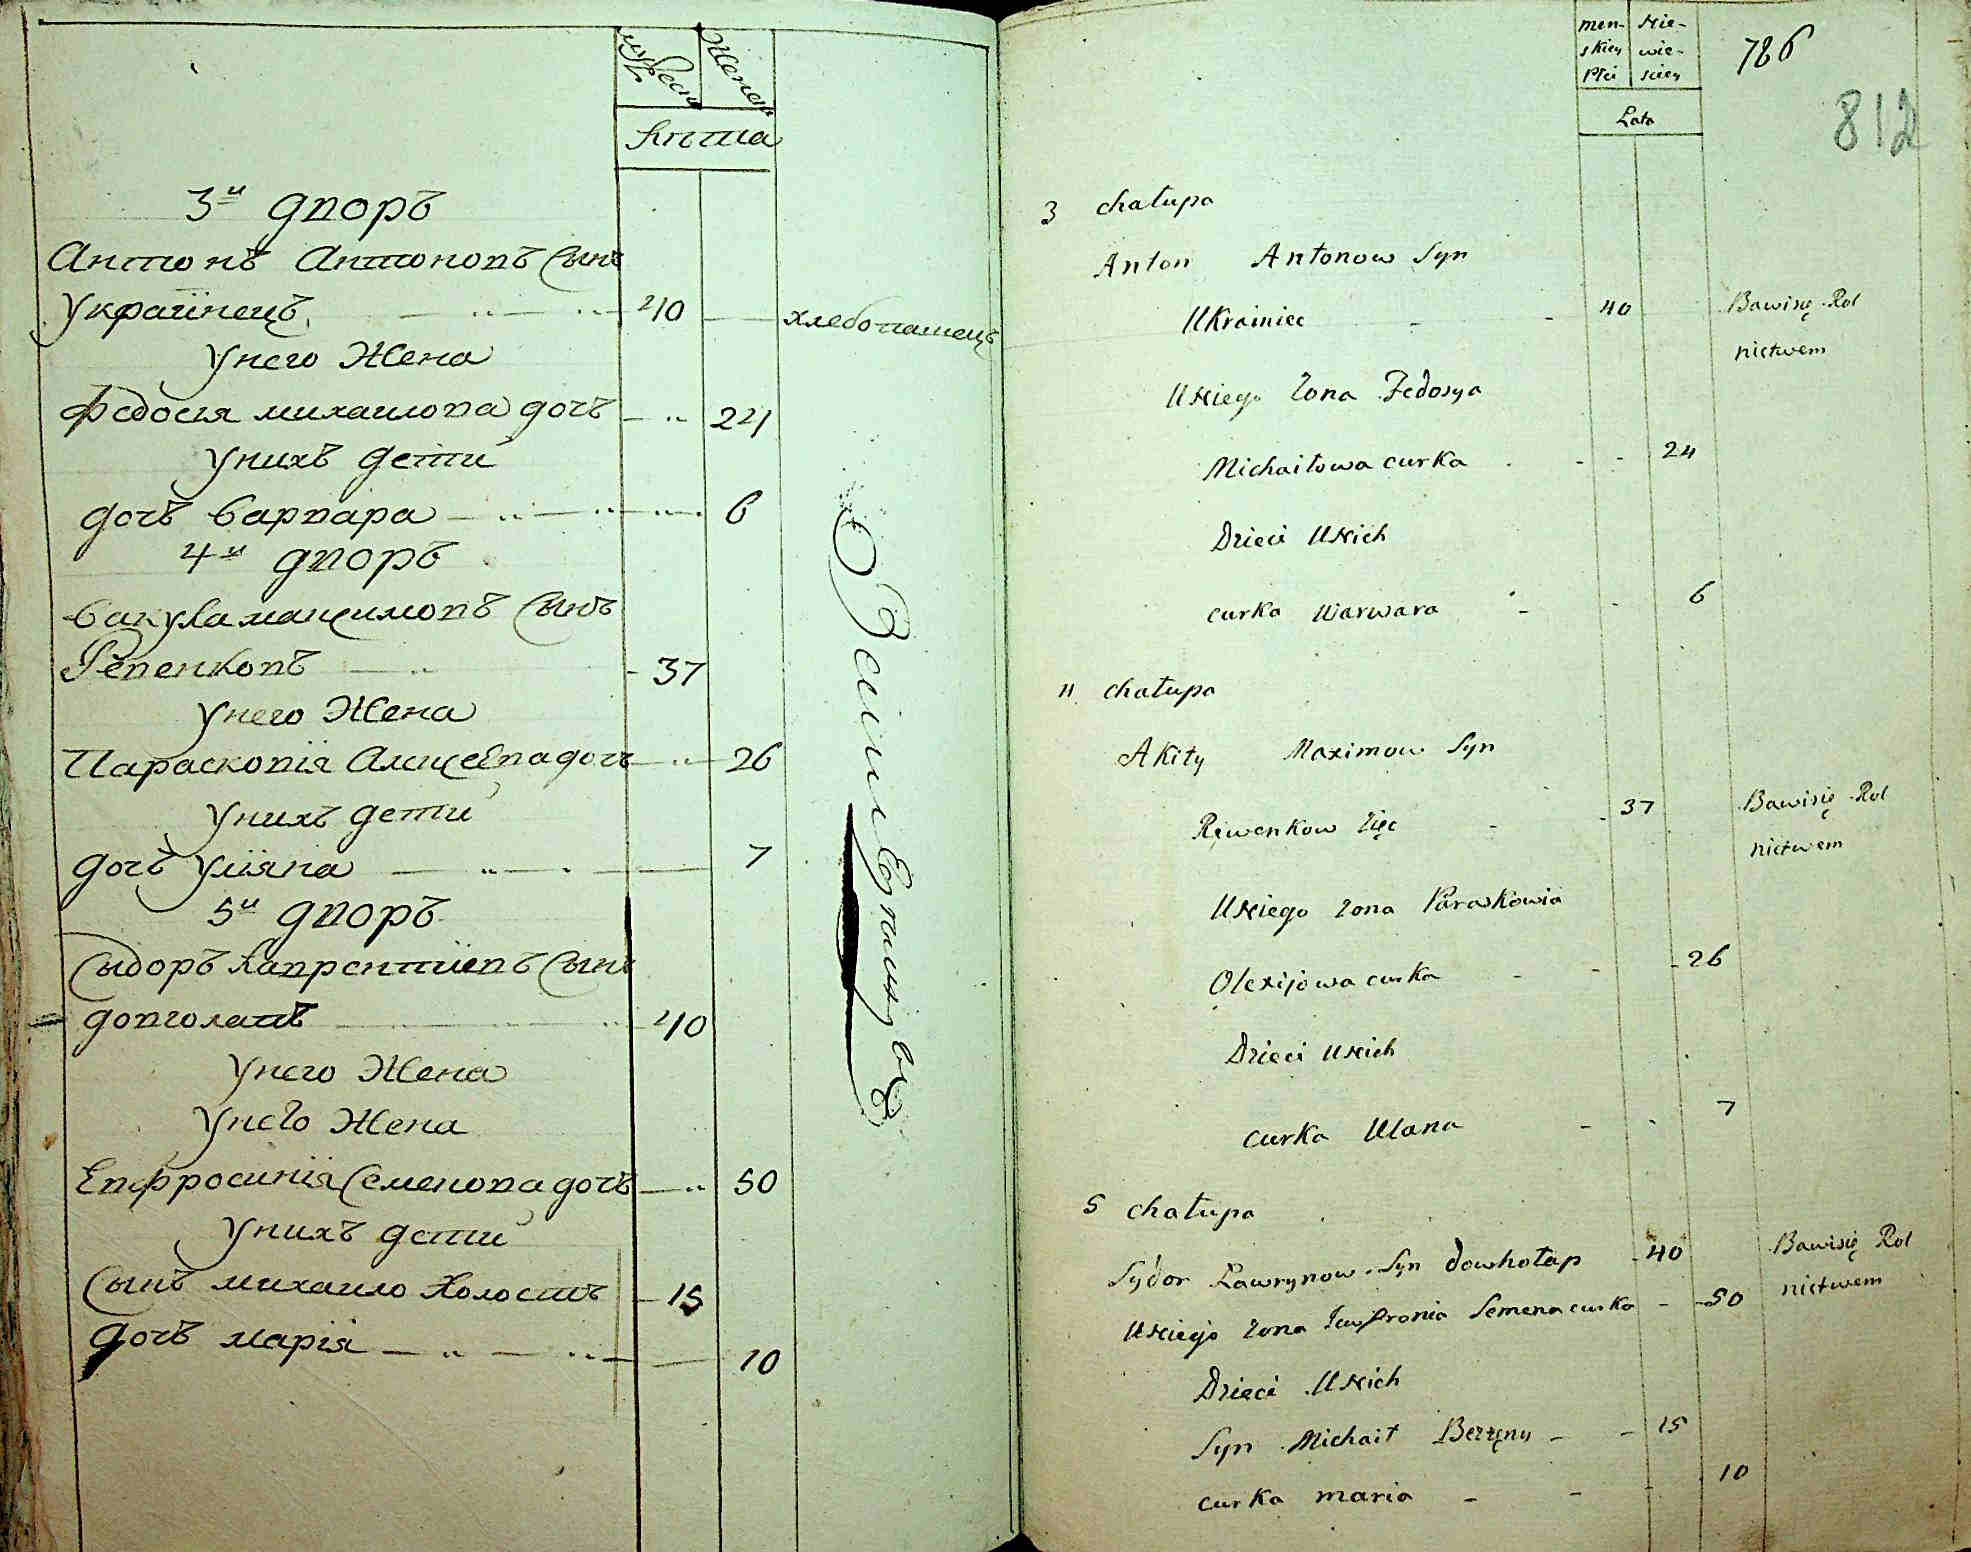 мужеск женск
лѣта
3й дворъ
Антонъ Антоновъ Сынъ
Украинецъ 40 хлебопашецъ
У него Жена
Федосія михаилова дочь 24
У нихъ дети
дочь Варвара 6
4й дворъ
Вакула максимовъ Сынъ
Ревенковъ 37
У него Жена
Парасковія Алексеева дочь 26
У нихъ дети
дочь Уліяна 7
5й дворъ
Сыдоръ Лаврентіевъ Сынъ
довголапъ 40
У него Жена
У него Жена
Евфросинія Семенова дочь 50
У нихъ дети
Сынъ михаило Холостъ 15
дочь марія 10
men- Nie-
skiey wie-
Płci sciey
Lata
786
812
3 chałupa
Anton Antonow Syn
Ukrainiec 40 Bawisię Rol
nictwem
UNiego Żona Fedosya
Michaiłowa curka 24
Dzieci UNich
curka Warwara 6
4 chałupa
Akiły Maximow Syn
Rewenkow Zięc 37 Bawisię Rol
nictwem
UNiego Żona Paraskowia
Olexijowa curka 26
Dzieci UNich
curka Ulana 7
5 chałupa
Sydor Ławrynow Syn dowhołap 40 Bawisię Rol
UNiego Żona Jewfronia Semena curka 50 nictwem
Dzieci UNich
Syn Michaił Bezżęny 15
curka maria 10